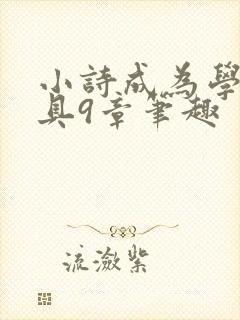 小詩成為學
具9章筆趣
流潋紫